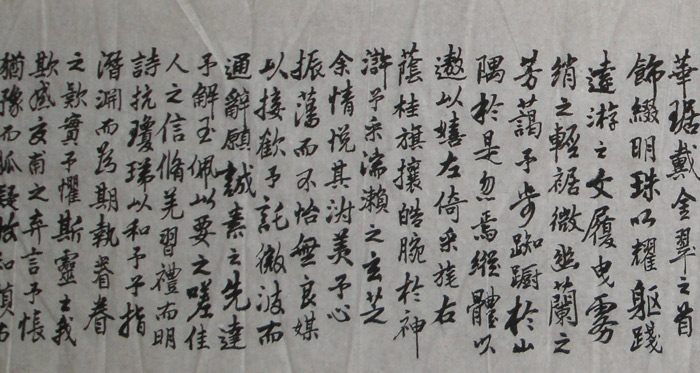 華琚戴金翠之首
飾綴明珠以耀軀踐
遠游之文履曳霧
綃之輕裾微幽蘭之
芳藹予步踟蹰於山
隅於是忽焉縱體以
遨以嬉左倚采旄右
蔭桂旗攘皓腕於神
滸予采湍瀨之玄芝
余情悅其淑美予心
振蕩而不怡無良媒
以接歡予託微波而
通辭願誠素之先達
予解玉佩以要之嗟佳
人之信脩羌習禮而明
詩抗瓊珶以和予予指
潛淵而為期執眷眷
之款實予懼斯靈之我
欺感交甫之弃言予悵
猶豫而狐疑